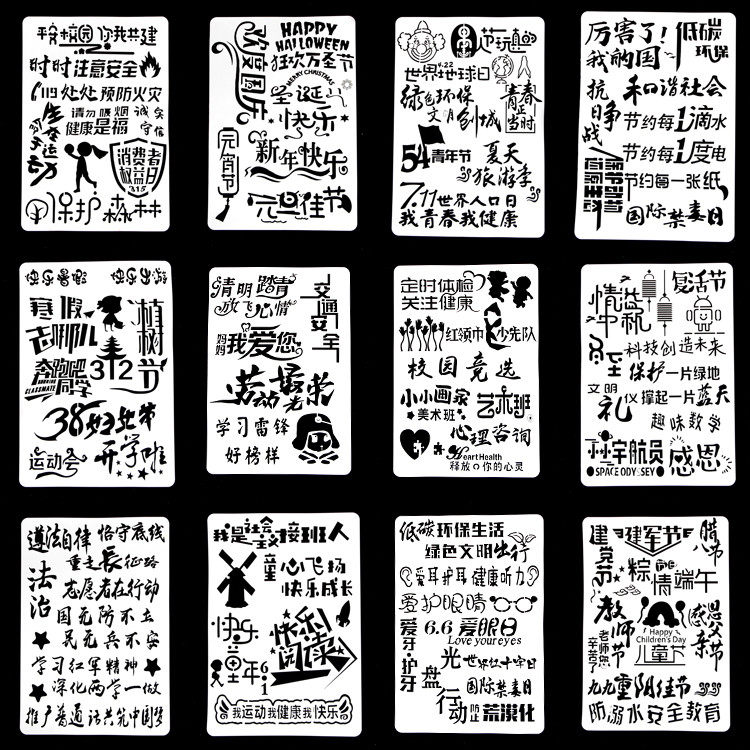 平安校园 你我共建
时时注意安全
119处处预防火灾
请勿吸烟
诚实
守信
健康是福
生命在运动
消费者
权益日
315
保护森林
HAPPY
HALLOWEEN
狂欢万圣节
欢度国庆
MERRY CHRISTMAS
圣诞
快乐
元宵节
新年快乐
元旦佳节
节
4.22
世界地球日
绿色环保
文明创城
青春正当时
54青年节
夏天
旅游季
7.11世界人口日
我青春我健康
厉害了!
我的国
低碳
环保
抗日争战
和谐社会
节约每1滴水
节约每1度电
节约每一张纸
国际禁毒日
快乐暑假
快乐出游
寒假
去哪儿
植树节
312
奔跑吧
同学
CLASSMATE
38妇女节
运动会
开学啦
清明踏青
放飞心情
交通安全
妈妈
我爱您
劳动最光荣
学习雷锋
好榜样
定时体检
关注健康
红领巾
少先队
校园竞选
小小画家
美术班
艺术班
心理咨询
Heart Health
释放你的心灵
复活节
科技创造未来
保护一片绿地
文明
礼仪
撑起一片蓝天
趣味数学
宇航员
SPACE ODYSSEY
感恩
遵法自律
恪守底线
重走长征路
法治
志愿者在行动
国无防不立
民无兵不安
学习红军精神
深化两学一做
推广普通话共筑中国梦
我是社会主义接班人
童心飞扬
快乐成长
快乐
童年
61
快乐
阅读
我运动我健康我快乐
低碳环保生活
绿色文明出行
爱耳护耳 健康听力
爱护眼睛
爱牙·护牙
6.6爱眼日
Love your eyes
光盘行动
世界红十字日
国际禁毒日
防止荒漠化
建党节
建军节
腊八节
粽情端午
教师节
老师您辛苦了
Happy
Children's Day
儿童节
感恩父亲节
九九重阳佳节
防溺水安全教育